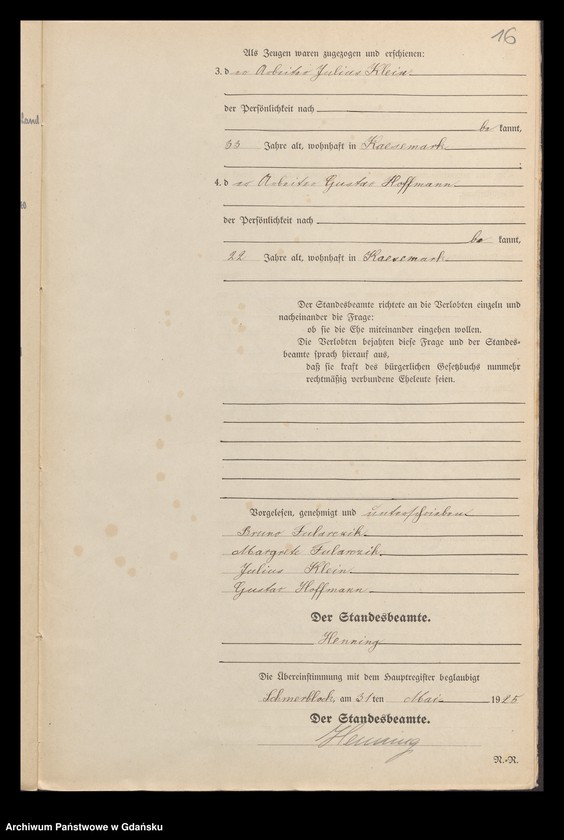 16
Als Zeugen waren zugezogen und erschienen:
3. d er Arbeiter Julius Klein
der Persönlichkeit nach
be kannt,
53 Jahre alt, wohnhaft in Kaesemark
4. d er Arbeiter Gustav Hoffmann
der Persönlichkeit nach
be kannt,
22 Jahre alt, wohnhaft in Kaesemark
Der Standesbeamte richtete an die Verlobten einzeln und
nacheinander die Frage:
ob sie die Ehe miteinander eingehen wollen.
Die Verlobten bejahten diese Frage und der Standes-
beamte sprach hierauf aus,
daß sie kraft des bürgerlichen Gesetzbuchs nunmehr
rechtmäßig verbundene Eheleute seien.
Vorgelesen, genehmigt und unterschrieben
Bruno Fularczik
Margrete Fularczik
Julius Klein
Gustav Hoffmann
Der Standesbeamte.
Henning
Die Übereinstimmung mit dem Hauptregister beglaubigt
Schmerblock, am 31 ten Mai 19 25
Der Standesbeamte.
Henning
N.-R.
Land
Archiwum Państwowe w Gdańsku